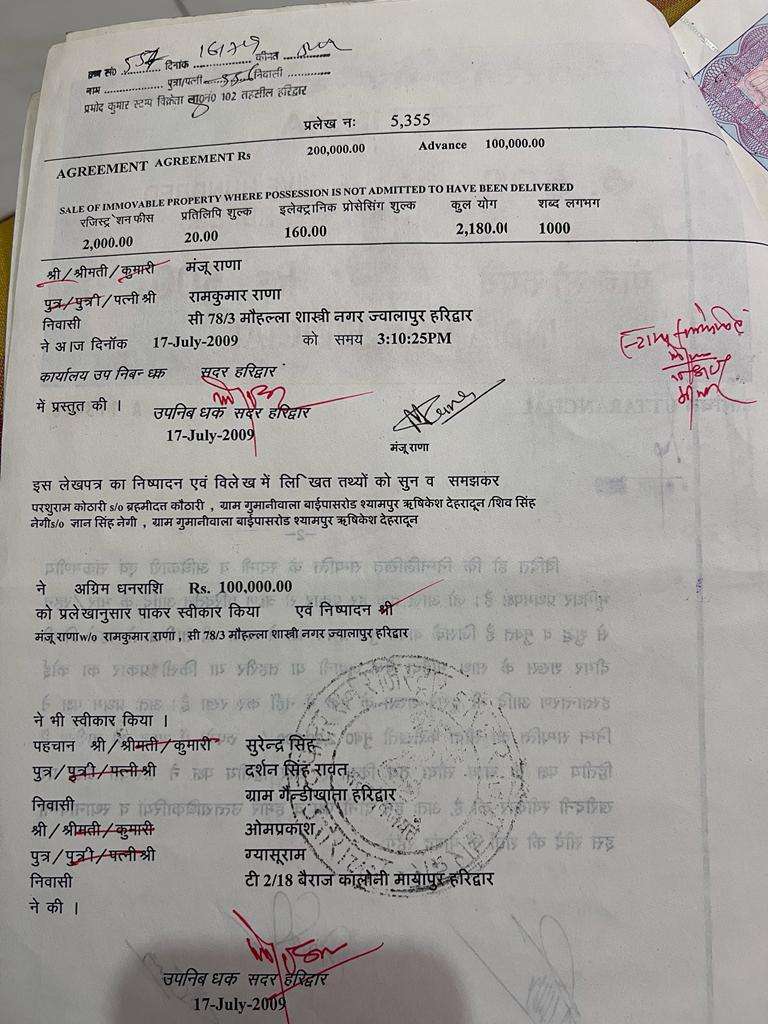 क्रम सं0 557 दिनांक 16/7/9 कीमत
नाम पुत्र/पत्नी निवासी
प्रमोद कुमार स्टाम्प विक्रेता ला0नं0 102 तहसील हरिद्वार
प्रलेख नः 5,355
AGREEMENT AGREEMENT Rs 200,000.00 Advance 100,000.00
SALE OF IMMOVABLE PROPERTY WHERE POSSESSION IS NOT ADMITTED TO HAVE BEEN DELIVERED
रजिस्ट्रेशन फीस प्रतिलिपि शुल्क इलेक्ट्रानिक प्रोसेसिंग शुल्क कुल योग शब्द लगभग
2,000.00 20.00 160.00 2,180.00 1000
श्री/श्रीमती/कुमारी मंजू राणा
पुत्र/पुत्री/पत्नी श्री रामकुमार राणा
निवासी सी 78/3 मौहल्ला शास्त्री नगर ज्वालापुर हरिद्वार
ने आज दिनॉक 17-July-2009 को समय 3:10:25PM
कार्यालय उप निबन्धक सदर हरिद्वार
में प्रस्तुत की ।
उपनिबंधक सदर हरिद्वार
17-July-2009
मंजू राणा
इस लेखपत्र का निष्पादन एवं विलेख में लिखित तथ्यों को सुन व समझकर
परशुराम कोठारी s/o ब्रहमीदत कौठारी , ग्राम गुमानीवाला बाईपासरोड श्यामपुर ऋषिकेश देहरादून /शिव सिंह
नेगीs/o ज्ञान सिंह नेगी , ग्राम गुमानीवाला बाईपासरोड श्यामपुर ऋषिकेश देहरादून
ने अग्रिम धनराशि Rs. 100,000.00
को प्रलेखानुसार पाकर स्वीकार किया एवं निष्पादन श्री
मंजू राणा w/o रामकुमार राणा , सी 78/3 मौहल्ला शास्त्री नगर ज्वालापुर हरिद्वार
ने भी स्वीकार किया ।
पहचान श्री/श्रीमती/कुमारी सुरेन्द्र सिंह
पुत्र/पुत्री/पत्नी श्री दर्शन सिंह रावत
निवासी ग्राम गैन्डीखाता हरिद्वार
श्री/श्रीमती/कुमारी ओमप्रकाश
पुत्र/पुत्री/पत्नी श्री ग्यासूराम
निवासी टी 2/18 बैराज कालोनी मायापुर हरिद्वार
ने की ।
उपनिबंधक सदर हरिद्वार
17-July-2009